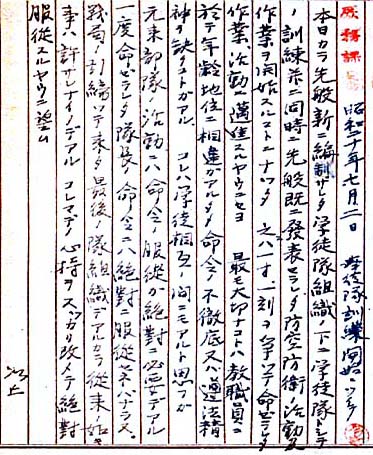 庶務課長
昭和二十年七月二日　学徒隊訓練開始ニツイテ
本日カラ先般新ニ編制サレタ学徒隊組織ノ下ニ学徒隊トシテ
ノ訓練並ニ同時ニ先般既ニ發表セラレタ防空防衛ノ活動及
作業ヲ開始スルコトニナツタ　之ハ一寸一刻ヲ争ツテ命ゼラレタ
作業、活動ニ邁進スルヤウニセヨ　最モ大切ナコトハ教職員ニ
於テ年齢地位ニ相違ガアルタメ命令ノ不徹底又ハ遵法精
神ヲ缺クコトガアル　コレハ学徒相互ノ間ニモアルト思フガ
元来部隊ノ活動ニハ命令ノ服從ガ絶對ニ必要デアル
一度命ゼラレタ隊長ノ命令ニハ絶對ニ服從セネバナラヌ。
戰局ノ引締ツテ来タ最後ノ隊組織デアルカラ從来ノ如キ
事ハ許サレナイノデアル　コレマデノ心持ヲスツカリ改メテ絶對
服從スルヤウニ望ム
以上